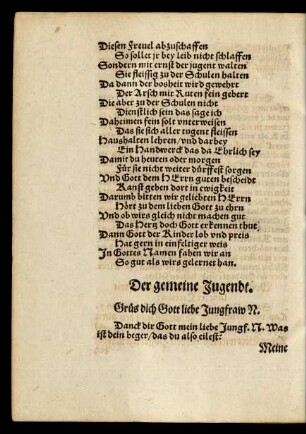 Diesen Freuel abzuschaffen
So sollet jr bey leib nicht schlaffen
Sondern mit ernst der jugent walten
Sie fleissig zu der Schulen halten
Da dann der bosheit wird gewehrt
Der Arsch mit Ruten fein gebert
Die aber zu der Schulen nicht
Dienstlich sein das sage ich
Daheimen fein solt vnterweisen
Das sie sich aller tugent fleissen
Haushalten lehren/vnd darbey
Ein Handwerck das da Ehrlich sey
Damit du heuten oder morgen
Für sie nicht weiter dürffest sorgen
Vnd Gott dem HErrn guten bescheidt
Kanst geben dort in ewigkeit
Darumb bitten wir gelibten HErrn
Hört zu dem lieben Gott zu ehrn
Vnd ob wirs gleich nicht machen gut
Das Hertz doch Gott erkennen thut
Dann Gott der Kinder lob vnd preis
Hat gern in einfeltiger weis
In Gottes Namen fahen wir an
So gut als wirs gelernet han.
Der gemeine Jugendt.
Grüs dich Gott liebe Jungfraw N.
Danck dir Gott mein liebe Jungf. N. Was
ist dein beger/das du also eilest?
Meine